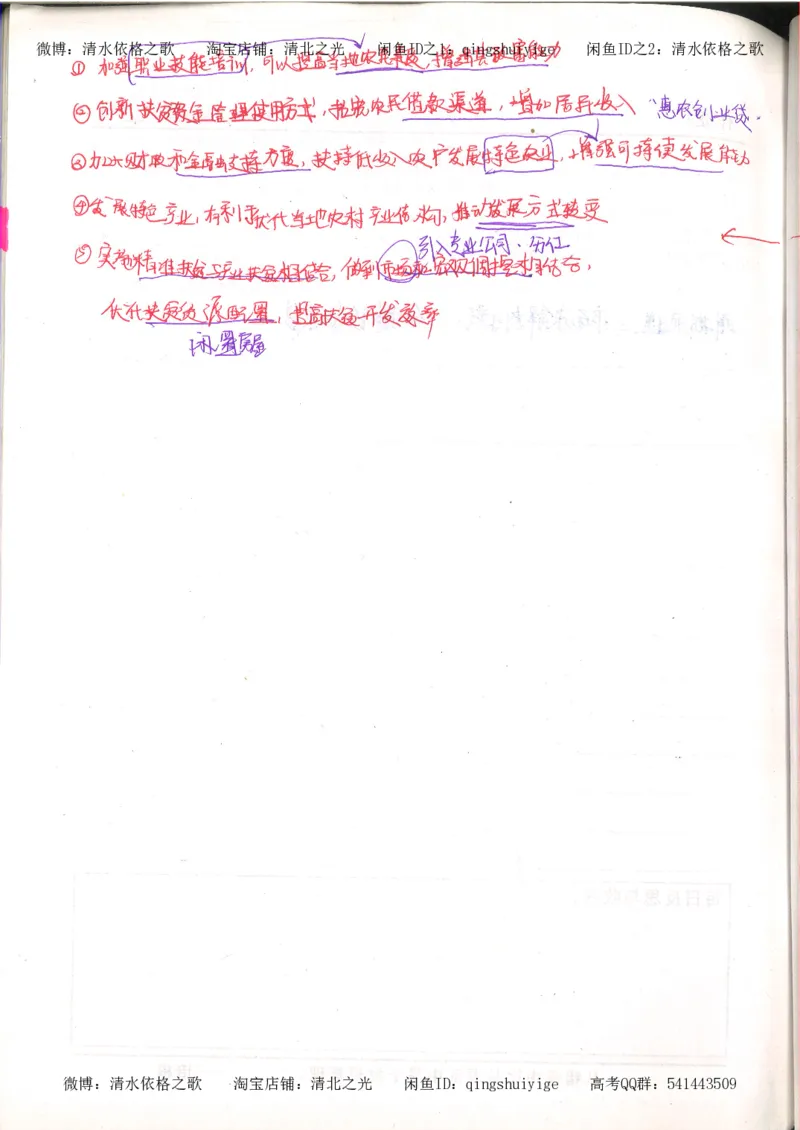 微博：清水依格之歌 淘宝店铺：清北之光 闲鱼ID之1：qingshuiyige 闲鱼ID之2：清水依格之歌
① 加强职业技能培训，可以提高当地农民素质，增强致富能力
② 创新扶贫资金管理使用方式，拓宽农民借款渠道，增加居民收入 "惠农创业贷.
③ 加大财政和金融支持力度，扶持低收入农户发展特色农业，增强可持续发展能力
④ 发展特色产业，有利于优化当地农村产业结构，推动发展方式转变
引入专业公司、分红
⑤ 实施精准扶贫与产业扶贫相结合，做到市场和宏观调控相结合，
优化扶贫资源配置，提高扶贫开发效率
闲置
微博：清水依格之歌 淘宝店铺：清北之光 闲鱼ID：qingshuiyige 高考QQ群：541443509